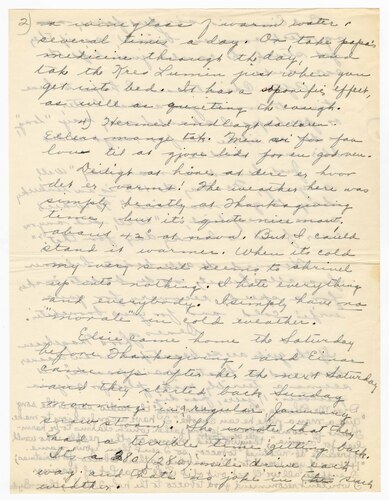 2) a wineglass of warm water
several times a day. Or, take papa's
medicine through the day, and
take the Kres Lumin just when you
get into bed. It has a specific effect,
as well as quieting the cough.
4) Hermed indlagt
Ellers mange tak. Men vi for for
lov til at gjøre lidt for en god ven.
Deiligt at høre at der er, hvor
det er varmt! The weather here was
simply beastly at Thanksgiving
time, but it's quite nice now,
about 42° at noon. But I could
stand it warmer. When it's cold
my very soul seems to shrivel
up into nothing. I hate everything
and everybody. I simply have no
"morale" in cold weather.
Elsie came home the Saturday
before Thanksgiving and Einar
came up after her the next Saturday
and they started back Sunday
morning in regular January
snow storm. She wrote that they
had a terrible time getting back.
It's a 280 (280) mile drive each
way and that's no joke in such
weather.